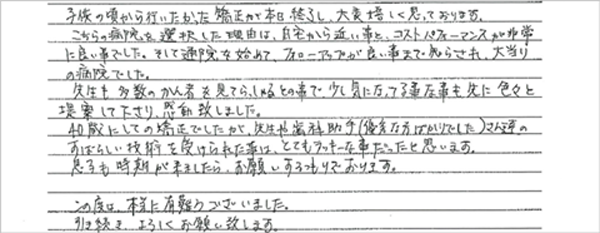 子供の頃から行いたかった矯正が本日終了し、大変嬉しく思っております。
こちらの病院を選択した理由は、自宅から近い事と、コストパフォーマンスが非常
に良い事でした。そして通院を始めて、フォローアップが良い事まで知らされ、大当り
の病院でした。
先生も多数のかん者を見てらっしゃるとの事で少し気になってる事な事も先に色々と
提案して下さり、感動致しました。
40歳にしての矯正でしたが、先生や歯科助手(優秀な方ばかりでした)さん達の
すばらしい技術を受けられた事は、とてもラッキーな事だったと思います。
息子も時期が来ましたら、お願いするつもりでおります。
この度は、本当に有難うございました。
引き続き、よろしくお願い致します。